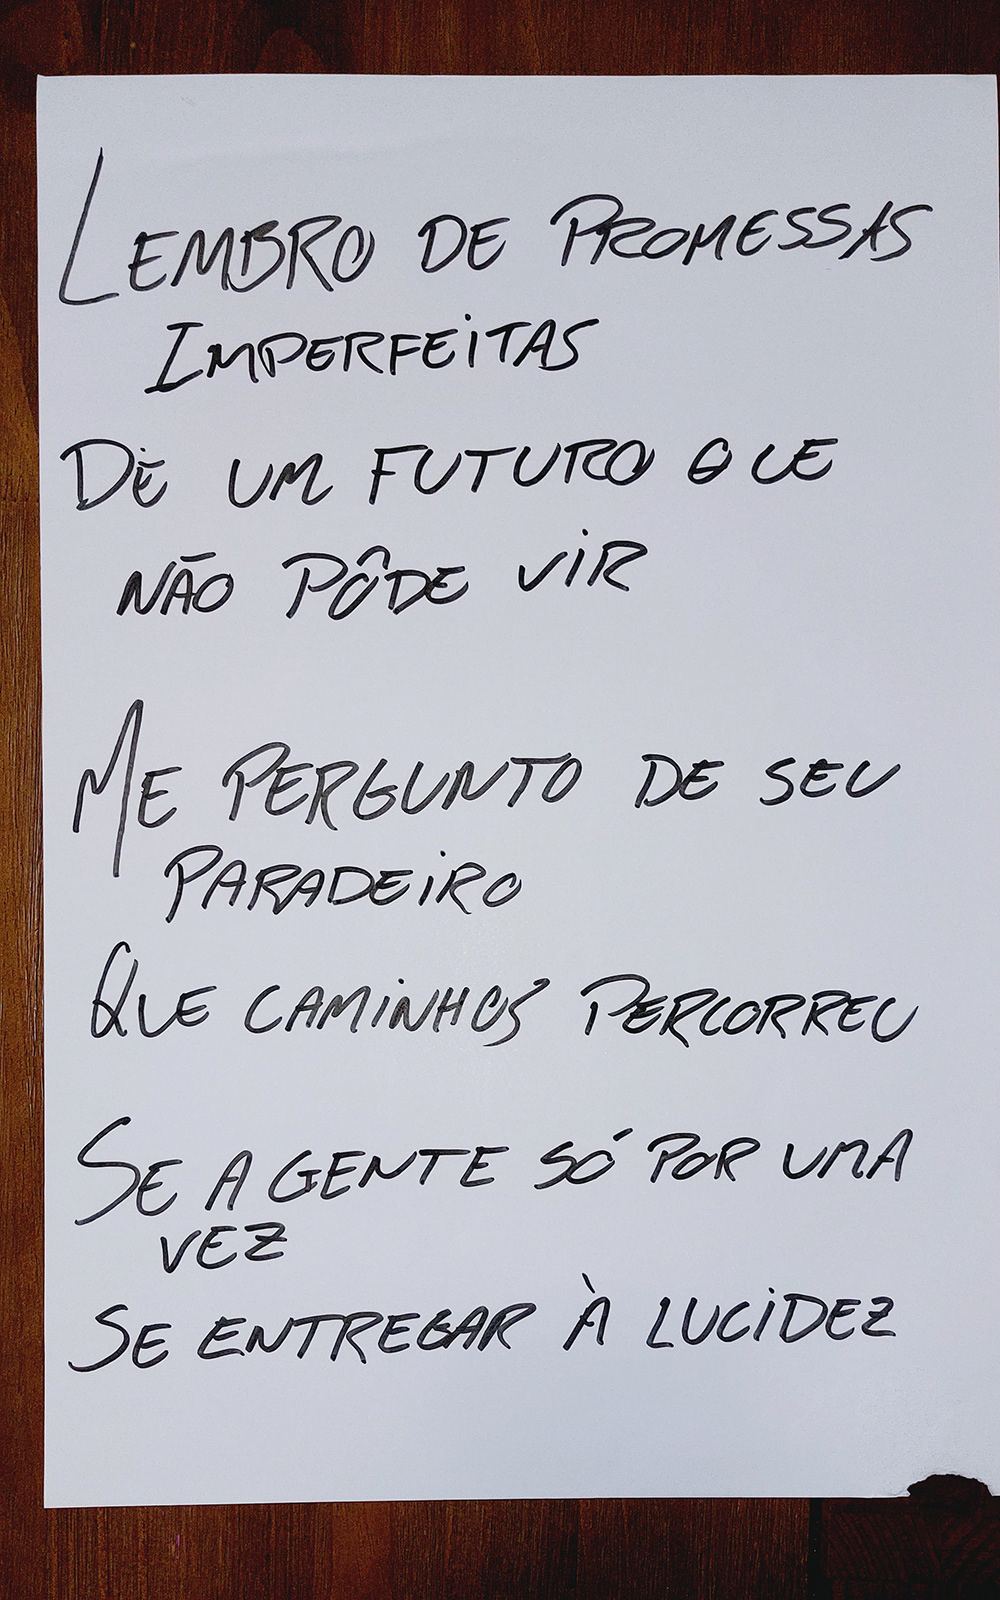 LEMBRO DE PROMESSAS
IMPERFEITAS
DE UM FUTURO QUE
NÃO PÔDE VIR
ME PERGUNTO DE SEU
PARADEIRO
QUE CAMINHOS PERCORREU
SE A GENTE SÓ POR UMA
VEZ
SE ENTREGAR À LUCIDEZ